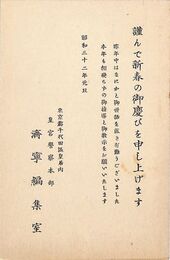 謹んで新春の御慶びを申し上げます
昨年中はなにかと御世話を戴き有難うございました
本年も相変らずの御指導と御教示をお願いいたします
昭和三十二年元旦
東京都千代田区皇居内
皇宮警察本部
済寧編集室